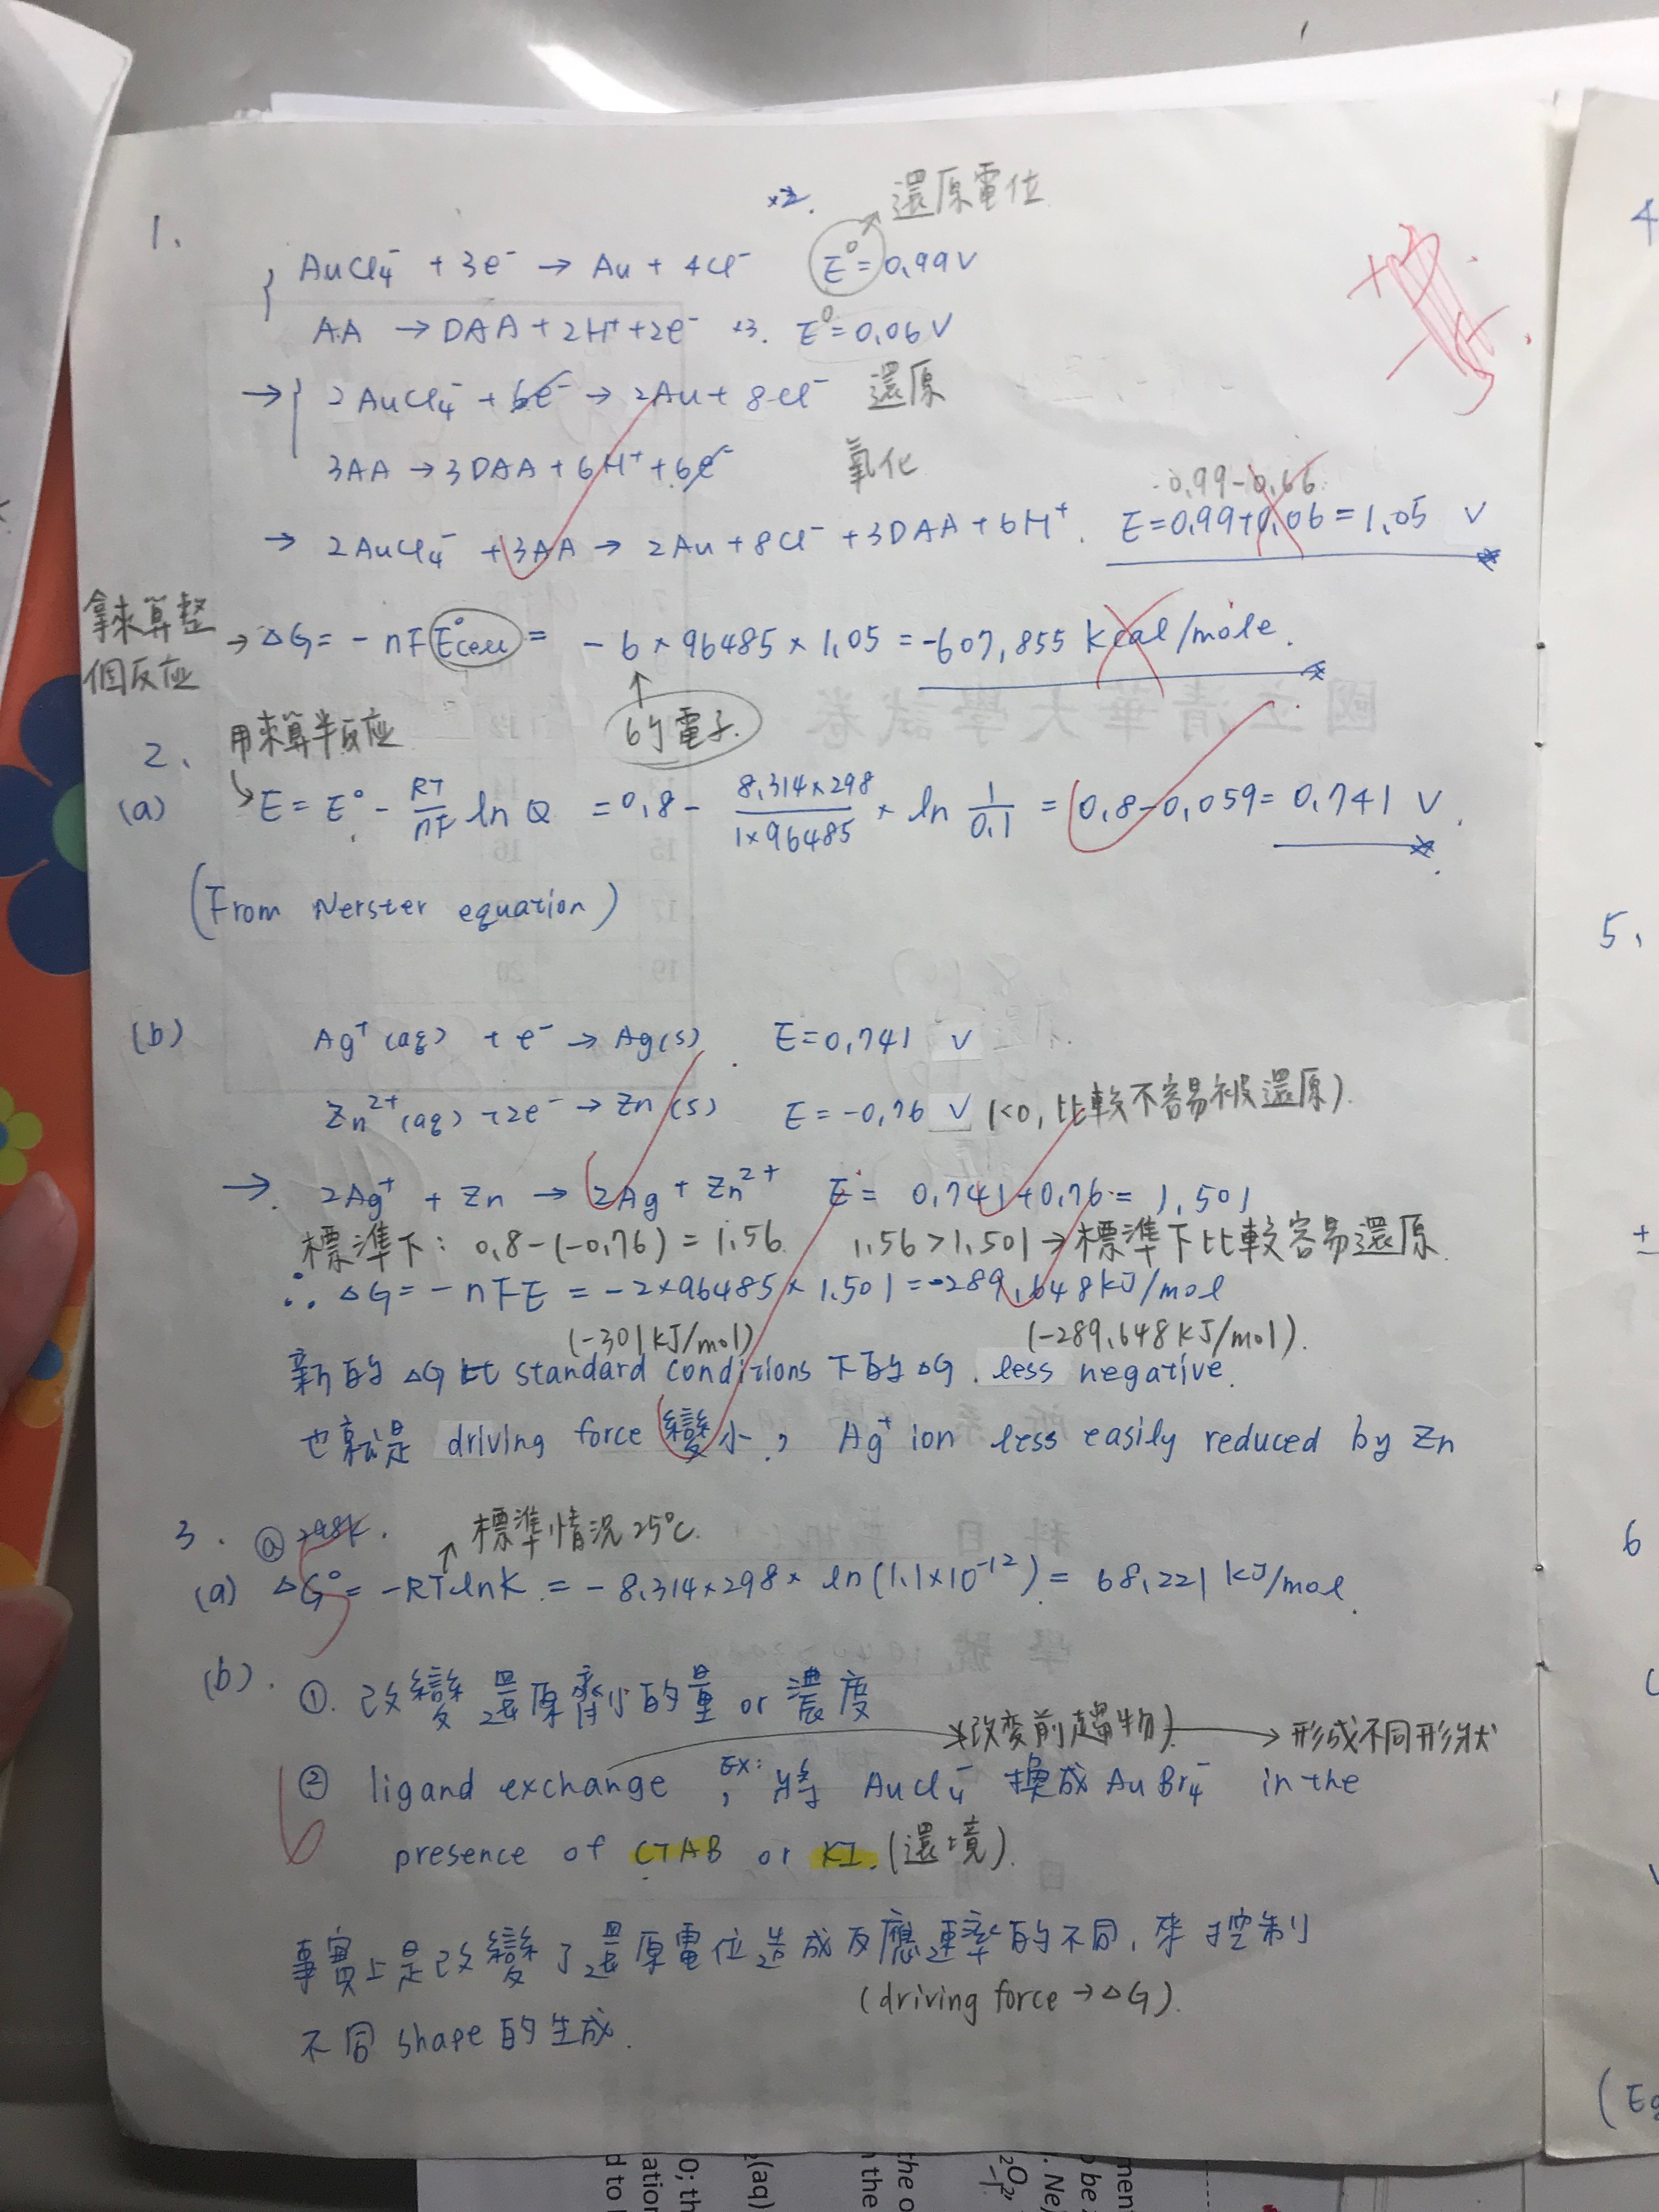 ×2. 還原電位
1、
AuCl₄⁻ + 3e⁻ → Au + 4Cl⁻ E⁰=0.99V
AA → DAA + 2H⁺ + 2e⁻ ×3. E⁰=0.06V
→ 2AuCl₄⁻ + 6e⁻ → 2Au + 8Cl⁻ 還原
3AA → 3DAA + 6H⁺ + 6e⁻ 氧化
0.99-0.66
→ 2AuCl₄⁻ + 3AA → 2Au + 8Cl⁻ + 3DAA + 6H⁺. E=0.99+0.06=1.05 V
拿來算整
個反应
→ΔG = -nFE°cell = -6×96485×1.05 = -607,855 kcal/mole.
6的電子.
國立清華大學試卷
用來算半反应
2、
(a) E = E° - RT/nF ln Q = 0.8 - 8.314×298/1×96485 × ln 1/0.1 = 0.8-0.059 = 0.741 V.
(From Nerster equation)
(b) Ag⁺(aq) + e⁻ → Ag(s) E=0.741 V
Zn²⁺(aq) +2e⁻ → Zn(s) E=-0.76 V (<0, 比較不容易被還原).
→ 2Ag⁺ + Zn → 2Ag + Zn²⁺ E = 0.741+0.76 = 1.501
標準下: 0.8-(-0.76)=1.56. 1.56>1.501→標準下比較容易還原
∴ ΔG = -nFE = -2×96485×1.501 = -289.648kJ/mol
(-301kJ/mol) (-289.648kJ/mol).
新的 ΔG 比 standard conditions 下的 ΔG. less negative.
也就是 driving force 變小, Ag⁺ ion less easily reduced by Zn
3. @ 298K. 標準情況 25°C.
(a) ΔG° = -RTlnK = -8.314×298× ln(1.1×10⁻¹²) = 68.221 kJ/mol.
(b). ①. 改變還原劑的量 or 濃度
(改変前趨物) → 形成不同形狀
② ligand exchange, Ex: 將 AuCl₄⁻ 換成 AuBr₄⁻ in the
presence of CTAB or KI. (還境).
事實上是改變了還原電位造成反應速率的不同, 來控制
(driving force → ΔG).
不同 shape 的生成.
4
5、
6